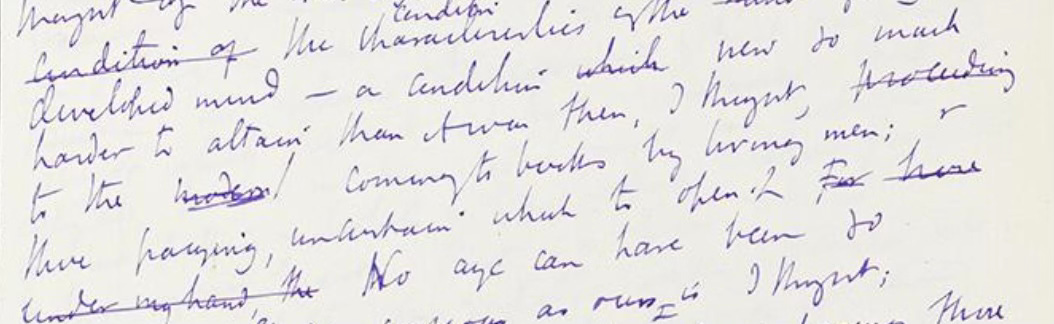 thought of the
condition of the characteristics of the
developed mind – a condition which now so much
harder to attain than it was then, I thought, proceeding
to the modern coming to books by living men; &
there pausing, uncertain which to open. For here
under my hand, the No age can have been so
as ours is I thought;
there